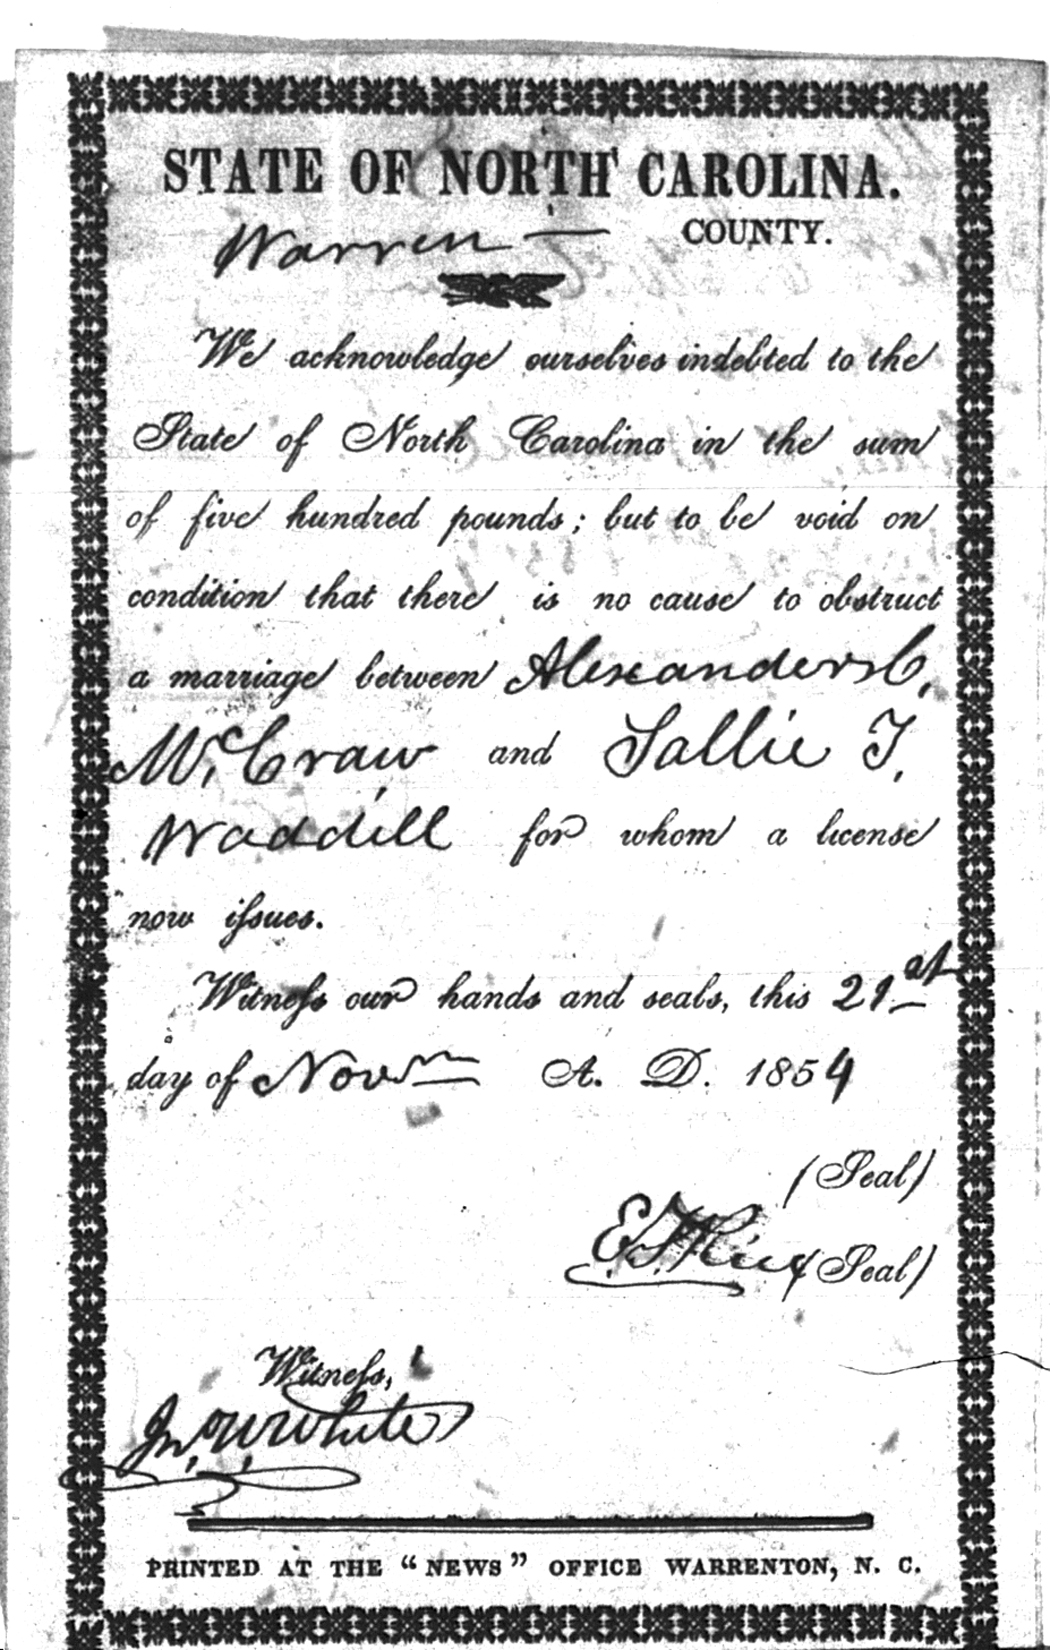 STATE OF NORTH CAROLINA.
Warren COUNTY.
We acknowledge ourselves indebted to the
State of North Carolina in the sum
of five hundred pounds; but to be void on
condition that there is no cause to obstruct
a marriage between Alexander C.
McCraw and Sallie T.
Waddill for whom a license
now issues.
Witness our hands and seals, this 21st
day of Novm A. D. 1854
(Seal)
E. T. Rice (Seal)
Witness,
Jno. W. White
PRINTED AT THE “NEWS” OFFICE WARRENTON, N. C.